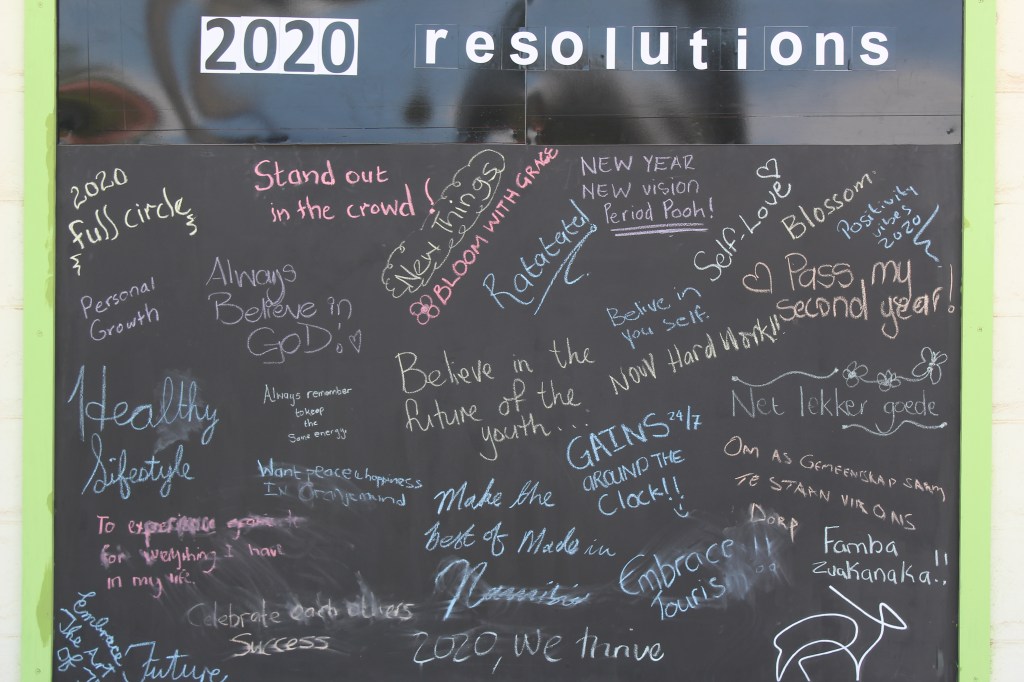 2020 resolutions
2020
full circle
Stand out
in the crowd!
New Things
BLOOM WITH GRACE
Ratatated
NEW YEAR
NEW vision
Period Pooh!
Self-Love
Blossom.
Positivity
vibes
2020
Personal
Growth
Always
Believe in
GOD!
Belive in
you self.
Pass my
second year!
Now Hard Work!!
Believe in the
future of the
youth...
Healthy
Lifestyle
Always remember
to keep
the
Same energy
Net lekker goede
GAINS 24/7
AROUND THE
Clock!!
Want peace & happiness
In Oranjemund
Make the
Best of Made in
Namibia
OM AS GEMEENSKAP SAAM
TE STAAN VIR ONS
DORP
To experience
for everything I have
in my life.
Embrace !!
Touris
Famba
Zvakanaka!!
Celebrate each others
Success
2020, We thrive
Embrace
The Art
Of
Future